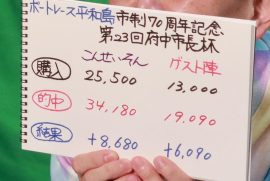 ボートレース平和島 市制70周年記念
第23回府中市長杯
こんせいそん ゲスト陣
購入 25,500 13,000
的中 34,180 19,090
結果 +8,680 +6,090